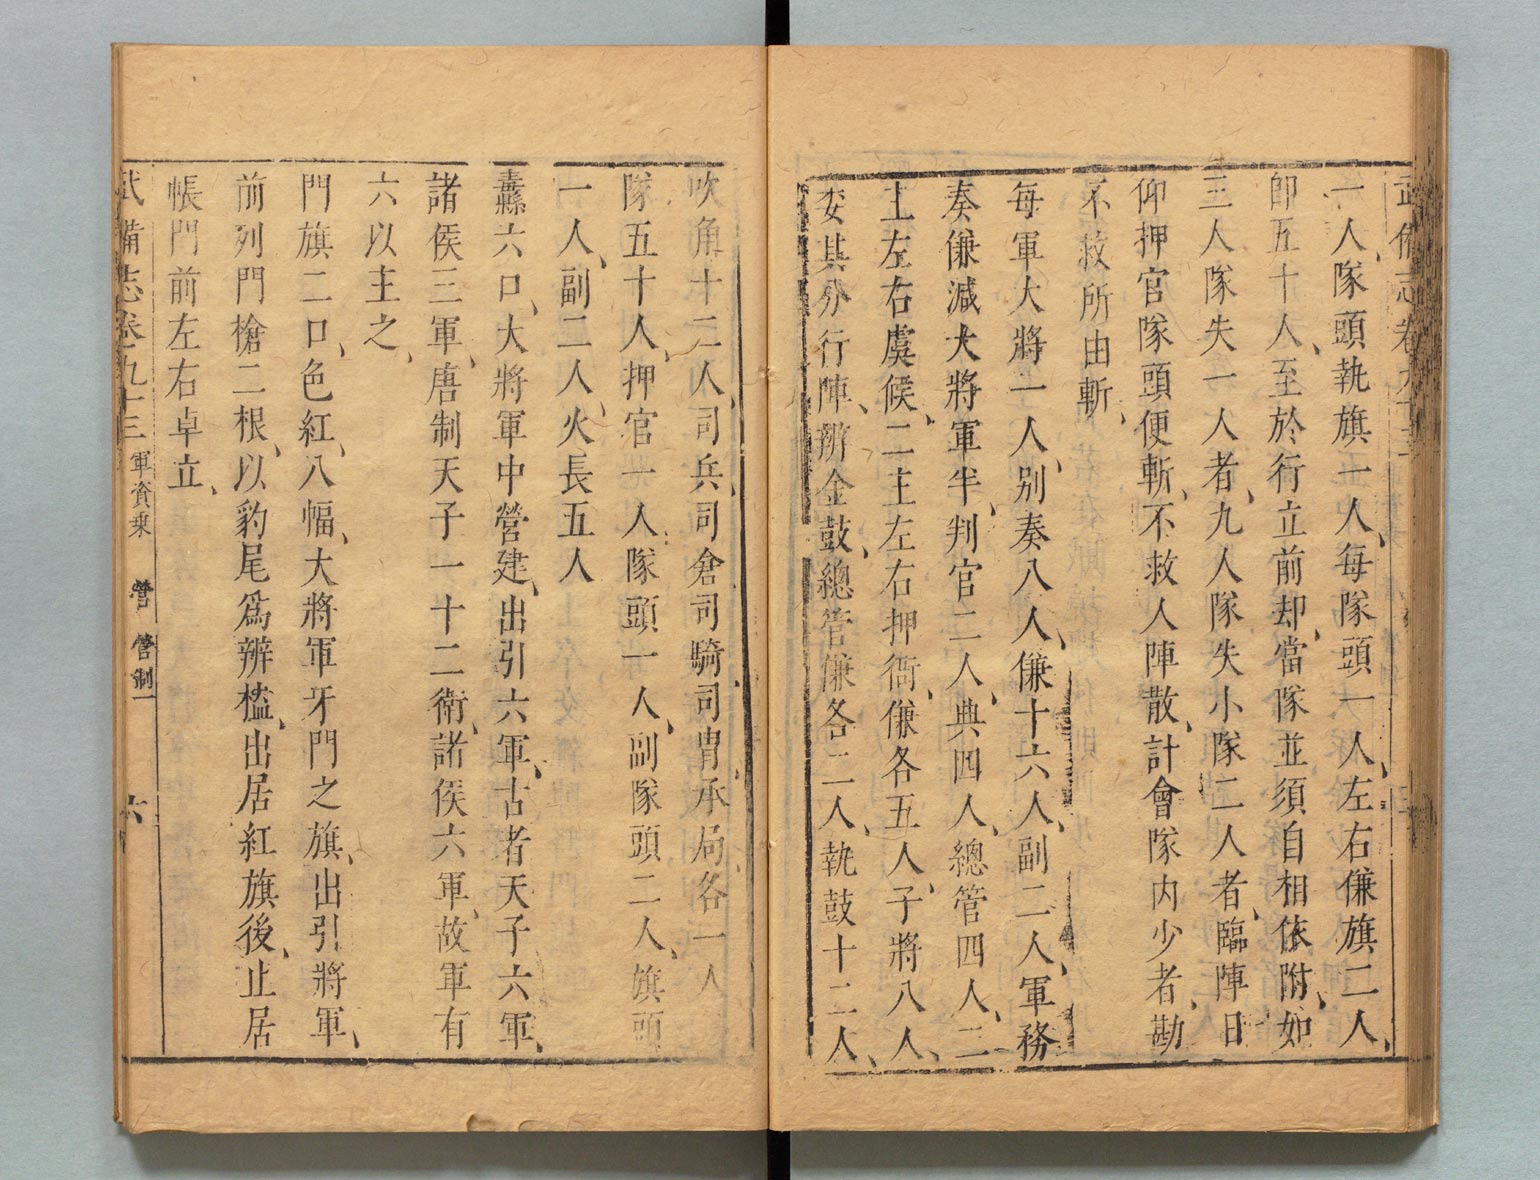 武備志卷九十三
一人、隊頭執旗一人、每隊頭一人、左右傔旗二人、
卽五十人、至於行立前却、當隊並須自相依附、如
三人隊失一人者、九人隊失小隊二人者、臨陣日
仰押官隊頭便斬、不救人陣散、計會隊內少者、勘
不救所由斬、
每軍大將一人、別奏八人、傔十六人、副二人、軍務
奏傔減大將軍半、判官二人、典四人、總管四人、二
主左右虞候、二主左右押衙、傔各五人、子將八人、
委其分行陣、辨金鼓、總管傔各二人、執鼓十二人、
吹角十二人、司兵、司倉、司騎、司冑、承局、各一人
隊五十人、押官一人、隊頭一人、副隊頭二人、旗頭
一人、副二人、火長五人
纛六口、大將軍中營建、出引六軍、古者天子六軍、
諸侯三軍、唐制天子一十二衛、諸侯六軍、故軍有
六以主之、
門旗二口、色紅、八幅、大將軍牙門之旗、出引將軍、
前列門槍二根、以豹尾爲辨槛、出居紅旗後、止居
帳門前左右卓立、
武備志卷九十三 軍資乗 營 營制一 六